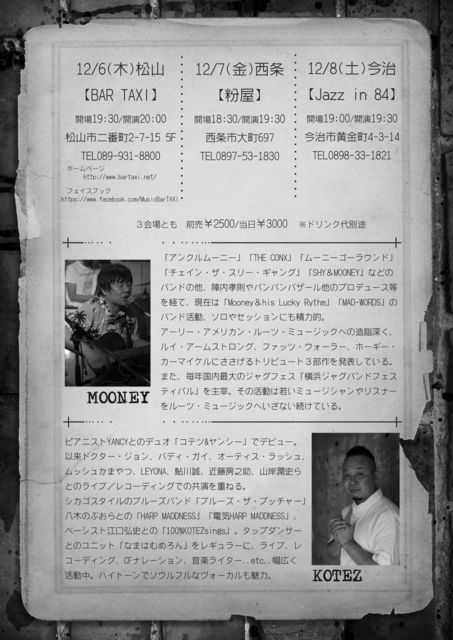 12/6(木)松山
【BAR TAXI】
開場19:30/開演20:00
松山市二番町2-7-15 5F
TEL089-931-8800
ホームページ
http://www.bartaxi.net/
フェイスブック
https://www.facebook.com/MusicBarTAXI
12/7(金)西条
【粉屋】
開場18:30/開演19:30
西条市大町697
TEL0897-53-1830
12/8(土)今治
【Jazz in 84】
開場19:00/開演19:30
今治市黄金町4-3-14
TEL0898-33-1821
3会場とも 前売¥2500/当日¥3000 ※ドリンク代別途
「アンクルムーニー」「THE CONX」「ムーニーゴーラウンド」
「チェイン・ザ・スリー・ギャング」「SHY&MOONEY」などの
バンドの他、陣内孝則やバンバンバザール他のプロデュース等
を経て、現在は「Mooney&his Lucky Rythm」「MAD-WORDS」の
バンド活動、ソロやセッションにも精力的。
アーリー・アメリカン・ルーツ・ミュージックへの造詣深く、
ルイ・アームストロング、ファッツ・ウォーラー、ホーギー・
カーマイケルにささげるトリビュート3部作を発表している。
また、毎年国内最大のジャグフェス「横浜ジャグバンドフェス
ティバル」を主宰。その活動は若いミュージシャンやリスナー
をルーツ・ミュージックへいざない続けている。
MOONEY
ピアニストYANCYとのデュオ「コテツ&ヤンシー」でデビュー。
以来ドクター・ジョン、バディ・ガイ、オーティス・ラッシュ、
ムッシュかまやつ、LEYONA、鮎川誠、近藤房之助、山岸潤史ら
とのライブ/レコーディングでの共演を重ねる。
シカゴスタイルのブルーズバンド「ブルーズ・ザ・ブッチャー」
八木のぶおらとの「HARP MADDNESS」「電気HARP MADDNESS」、
ベーシスト江口弘史との「100%KOTEZsings」、タップダンサー
とのユニット「なまはむめろん」をレギュラーに、ライブ、レ
コーディング、CFナレーション、音楽ライター..etc..幅広く
活動中。ハイトーンでソウルフルなヴォーカルも魅力。
KOTEZ